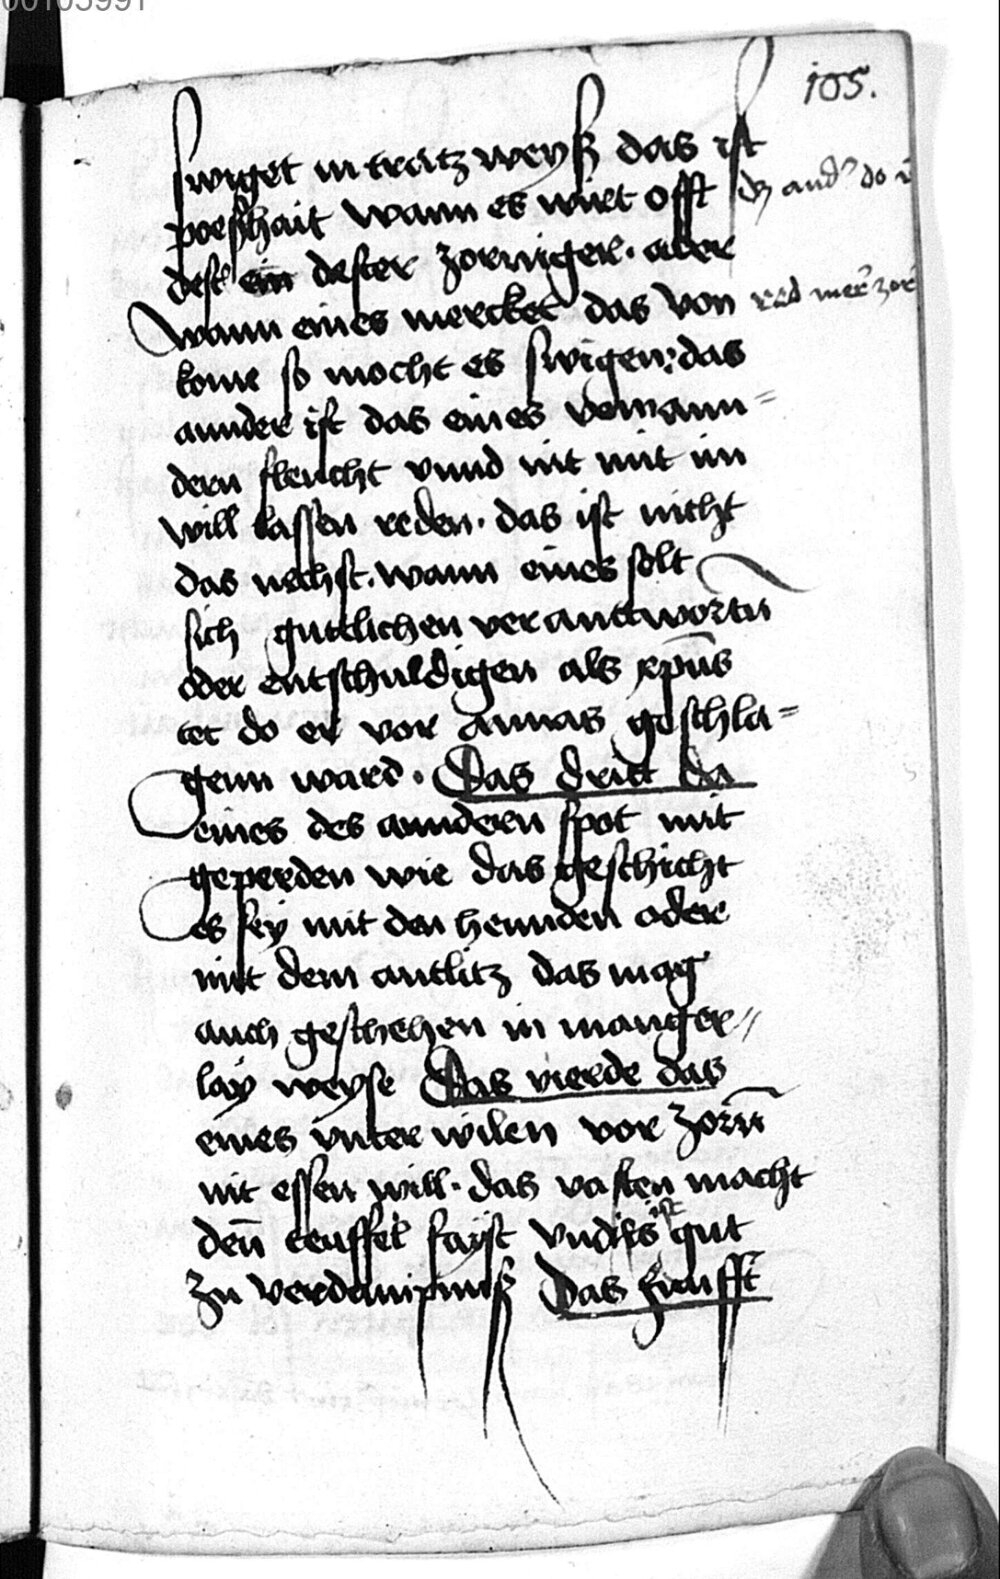 105.
swiget in tratz weyß das ist
poeßhait wann es wirt offt
dz and' do
dest ein dester zorniger. aber
wann eines mercket das von
red mer zor
kome so mocht es swigen. das
annder ist das eines dem ann=
dern fleucht vnnd nit mit im
will lassen reden. das ist nicht
das nechst. wann eines solt
sich guttlichen veranttwortn̄
oder entschuldigen als xp̄us
tet do er vor annas geschla=
genn ward. Das dritt da
eines des anndern spot mit
geperden wie das geschicht
es sey mit den hennden oder
mit dem antlitz das mag
auch geschehen in manger//
lay weyse Das vierde das
eines vnter wilen vor zorn̄
nit essen will. das vasten macht
den̄ teuffel fayst vnd ist gut
zu verdampnuß Das funfft